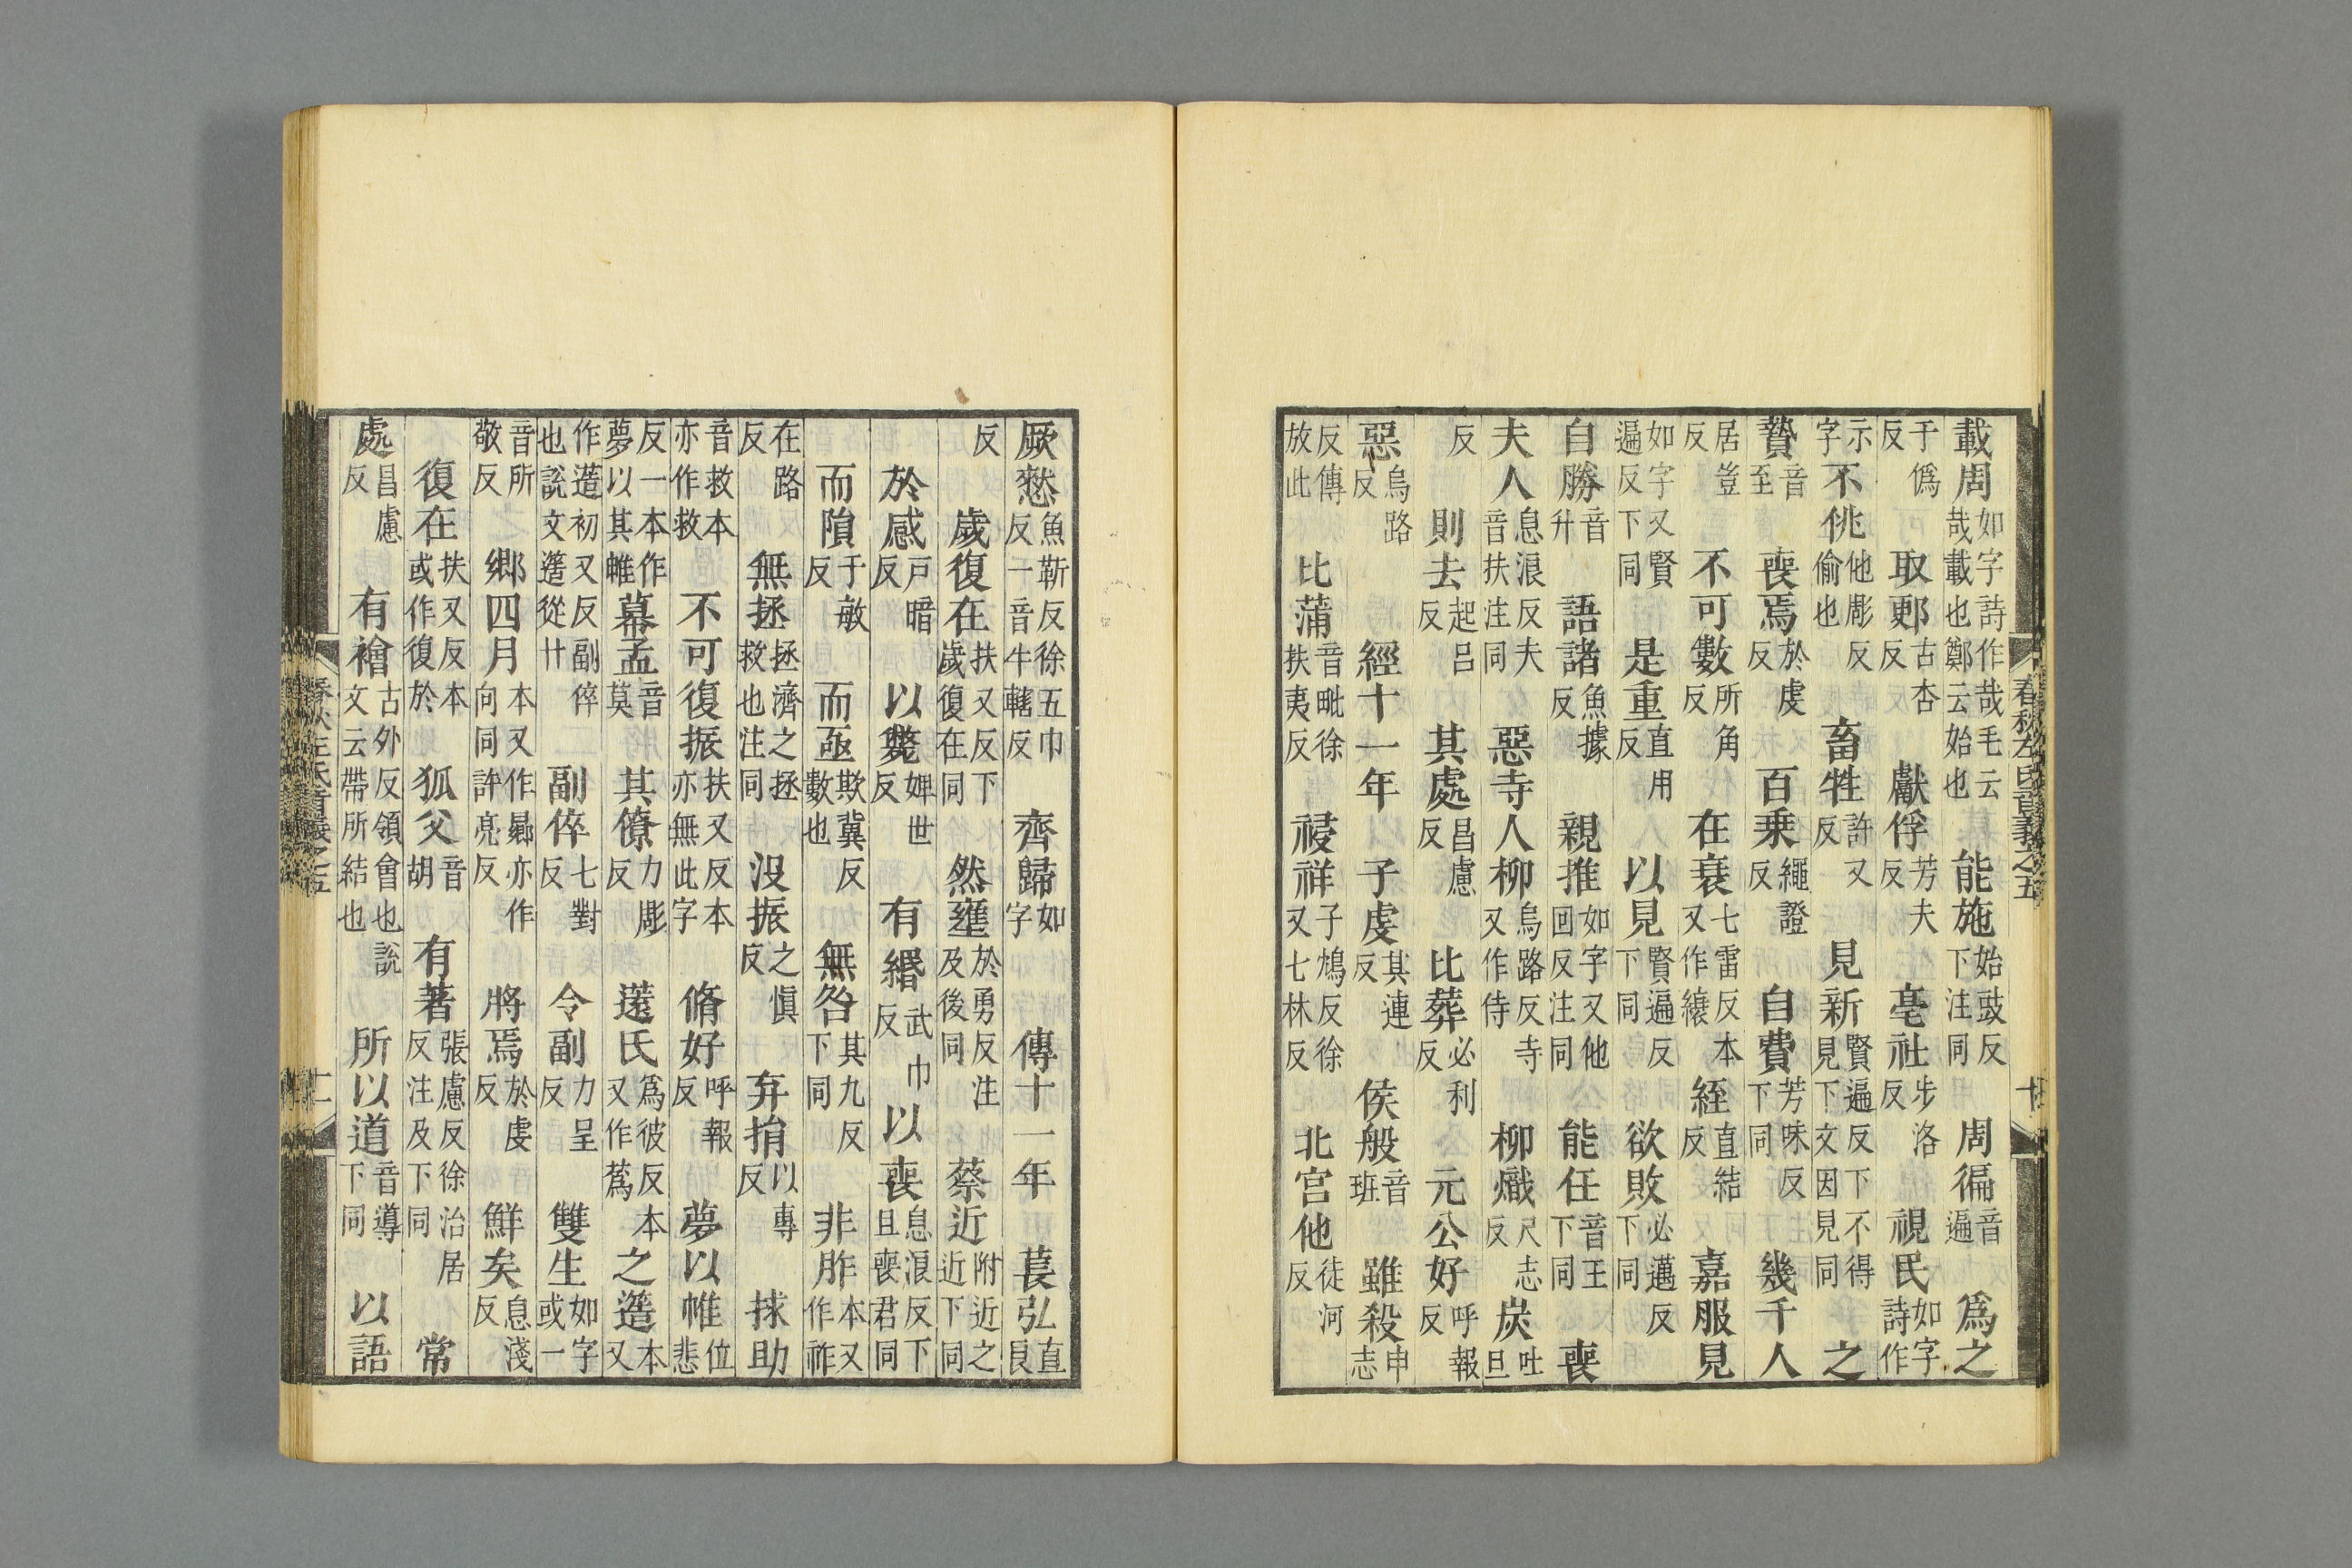 載周如字詩作哉毛云哉載也鄭云始也 能施始豉反下注同 周徧音遍 爲之
于僞反 取郠古杏反 獻俘芳夫反 亳社步洛反 視民如字詩作
示字 不佻他彫反偷也 畜牲許又反 見新賢遍反下不得見下文因見同 之
贄音至 喪焉於虔反 百乗繩證反 自費芳味反下同 幾千人
居豈反 不可數所角反 在衰七雷反本又作縗 絰直結反 嘉服見
如字又賢遍反下同 是重直用反 以見賢遍反下同 欲敗必邁反下同
自勝音升 語諸魚據反 親推如字又他回反注同 能任音王下同 喪
夫人息浪反夫音扶注同 惡寺人柳烏路反寺又作侍 柳熾尺志反 炭吐旦
反 則去起呂反 其處昌慮反 比葬必利反 元公好呼報反
惡烏路反 經十一年 子虔其連反 侯般音班 雖殺申志
反傳放此 比蒲音毗徐扶夷反 祲祥子鴆反徐又七林反 北宮他徒河反
春秋左氏音義之五 十
厥憖魚靳反徐五巾反一音牛轄反 齊歸如字 傳十一年 萇弘直良
反 歲復在扶又反下歲復在同 然壅於勇反注及後同 蔡近附近之近下同
於感戶暗反 以斃婢世反 有緡武巾反 以喪息浪反下且喪君同
而隕于敏反 而亟欺冀反數也 無咎其九反下同 非胙本又作祚
在路反 無拯拯濟之拯救也注同 沒振之愼反 弃捐以專反 捄助
音救本亦作救 不可復振扶又反本亦無此字 脩好呼報反 夢以帷位悲
反一本作夢以其帷 幕孟音莫 其僚力彫反 薳氏爲彼反本又作蔿 之簉本又
作簉初又反副倅也說文簉從廾 副倅七對反 令副力呈反 雙生如字或一
音所敬反 鄉四月本又作曏亦作向同許亮反 將焉於虔反 鮮矣息淺反
復在扶又反本或作復於 狐父音胡 有著張慮反徐治居反注及下同 常
處昌慮反 有襘古外反領會也說文云帶所結也 所以道音導下同 以語
春秋左氏音義之五 十一